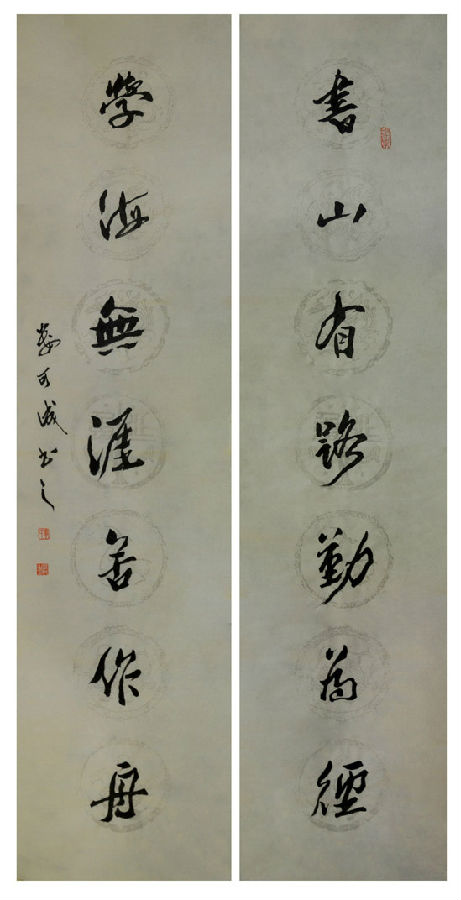 書山有路勤為徑
學海無涯苦作舟
可成书之